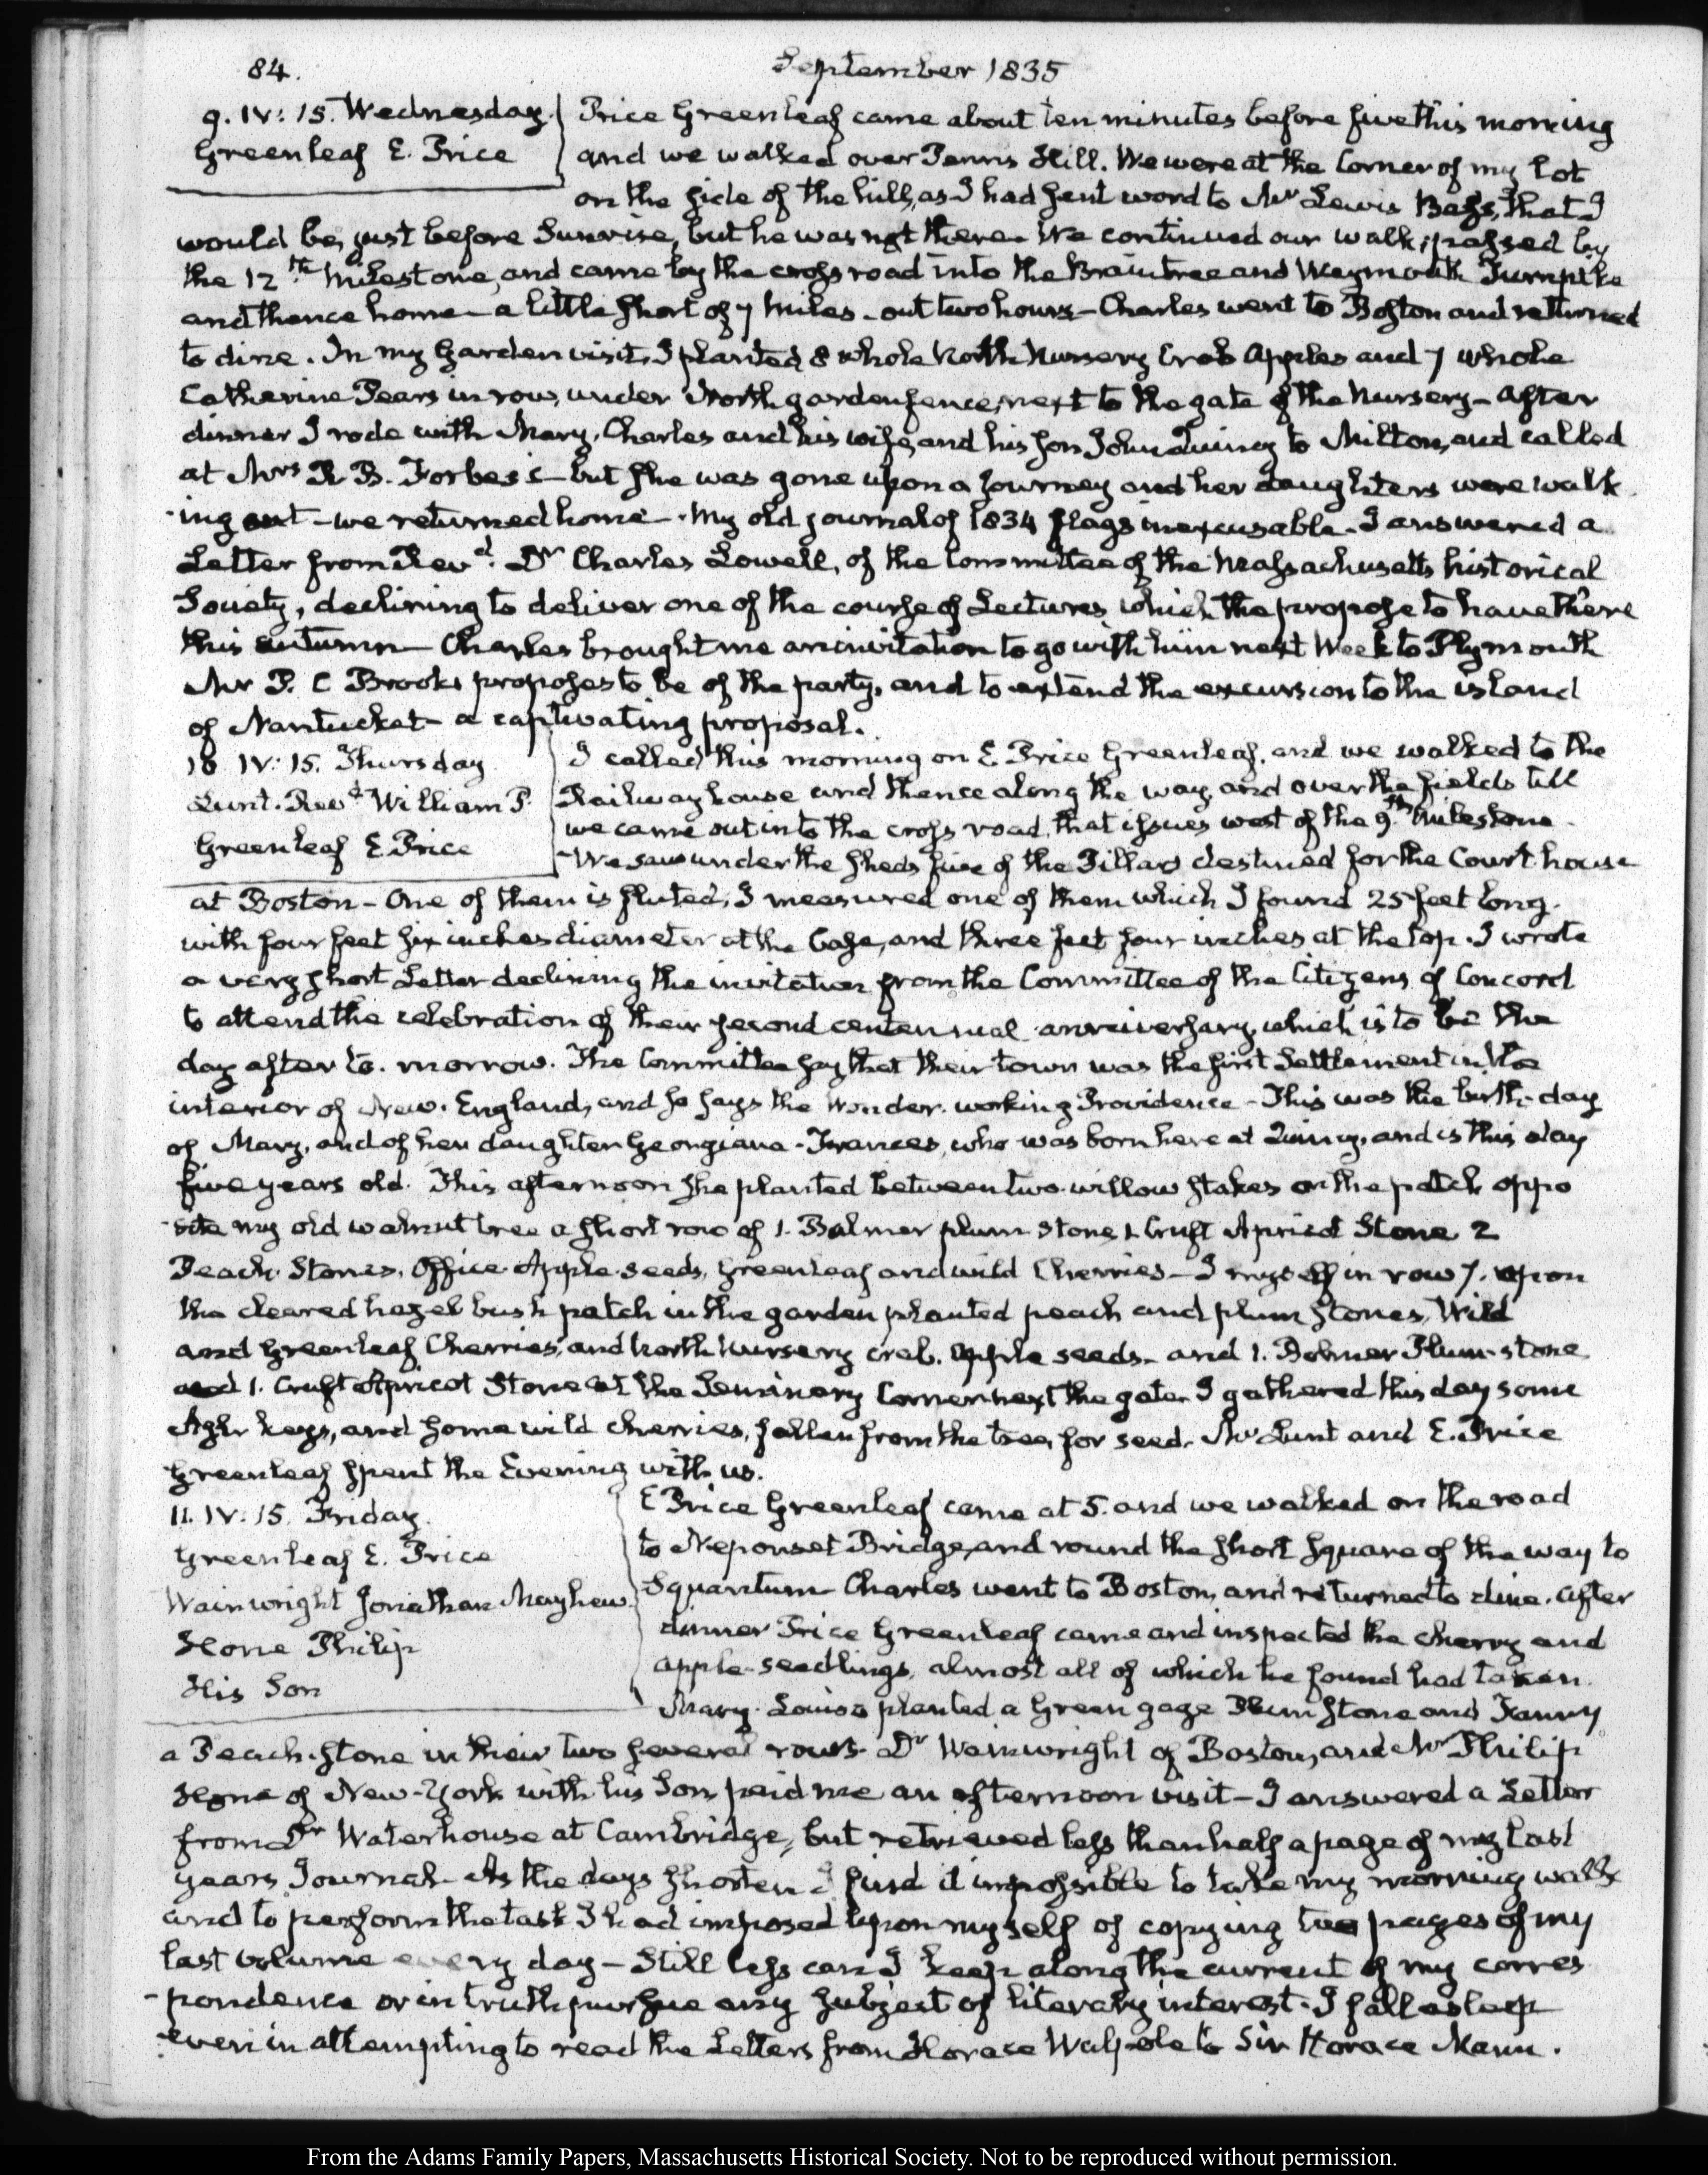 84.
September 1835
9. IV: 15. Wednesday.
Greenleaf E. Price
Price Greenleaf came about ten minutes before five this morning
and we walked over Penns Hill. We were at the Corner of my Lot
on the side of the hill, as I had sent word to Mr Lewis Bass, that I
would be, just before Sunrise, but he was not there. We continued our walk; passed by
the 12th Milestone, and came by the cross road into the Braintree and Weymouth Turnpike
and thence home— a little short of 7 Miles— out two hours— Charles went to Boston and returned
to dine. In my Garden visit, I planted 8 whole North Nursery Crab Apples and 7 whole
Catherine Pears in row, under North garden fence, next to the gate of the Nursery— After
dinner I rode with Mary, Charles and his wife, and his son John Quincy to Milton, and called
at Mrs R. B. Forbes's— but she was gone upon a journey and her daughters were walk
-ing out— we returned home—. My old journal of 1834 flags inexcusable. I answered a
Letter from Revd. Dr Charles Lowell, of the Committee of the Massachusetts historical
Society, declining to deliver one of the course of Lectures which the propose to have there
this autumn— Charles brought me an invitation to go with him next Week to Plymouth
Mr P. C Brooks proposes to be of the party, and to extend the excursion to the island
of Nantucket— a captivating proposal.
10. IV: 15. Thursday
Lunt. Revd William P.
Greenleaf E Price
I called this morning on E. Price Greenleaf, and we walked to the
Railway house and thence along the way, and over the fields till
we came out into the cross road, that issues west of the 9th Milestone.
—We saw under the sheds five of the Pillars destined for the Court house
at Boston— One of them is fluted; I measured one of them which I found 25 feet long.
with four feet six inches diameter at the base, and three feet four inches at the top. I wrote
a very short Letter declining the invitation from the Committee of the Citizens of Concord
to attend the celebration of their second centennial anniversary, which is to be the
day after to-morrow. The Committee say that their town was the first Settlement in the
interior of New-England, and so says the Wonder-working Providence— This was the birth-day
of Mary, and of her daughter Georgiana-Frances, who was born here at Quincy, and is this day
five years old. This afternoon she planted between two willow stakes on the patch oppo
-site my old walnut tree a short row of 1. Bolmer plum stone, 1 Cruft Apricot Stone 2
Peach Stones, Office Apple-seeds, Greenleaf and wild Cherries— I myself in row 7. upon
the cleared hazel bush patch in the garden planted peach and plum stones, Wild
and Greenleaf Cherries, and North Nursery crab-apple seeds— and 1. Bolmer Plum-stone
and 1. Cruft Apricot Stone at the Seminary Corner next the gate. I gathered this day some
Ash keys, and some wild cherries, fallen from the tree, for seed. Mr Lunt and E. Price
Greenleaf spent the Evening with us.
11. IV: 15. Friday.
Greenleaf E. Price
Wainwright Jonathan Mayhew
Hone Philip
His Son
E Price Greenleaf came at 5. and we walked on the road
to Neponset Bridge, and round the short square of the way to
Squantum— Charles went to Boston, and returned to dine. After
dinner Price Greenleaf came and inspected the cherry and
apple-seedlings, almost all of which he found had taken.
Mary-Louisa planted a Green gage Plum stone and Fanny
a Peach-stone in their two several rows— Dr Wainwright of Boston, and Mr Philip
Hone of New-York with his Son, paid me an afternoon visit— I answered a Letter
from Dr Waterhouse at Cambridge, but retrieved less than half a page of my last
years Journal— As the days shorten I find it impossible to take my morning walk
and to perform the task I had imposed upon myself of copying two pages of my
last volume every day— Still less can I keep along the current of my corres
-pondence or in truth pursue any subject of literary interest. I fall asleep
even in attempting to read the Letters from Horace Walpole to Sir Horace Mann.
From the Adams Family Papers, Massachusetts Historical Society. Not to be reproduced without permission.